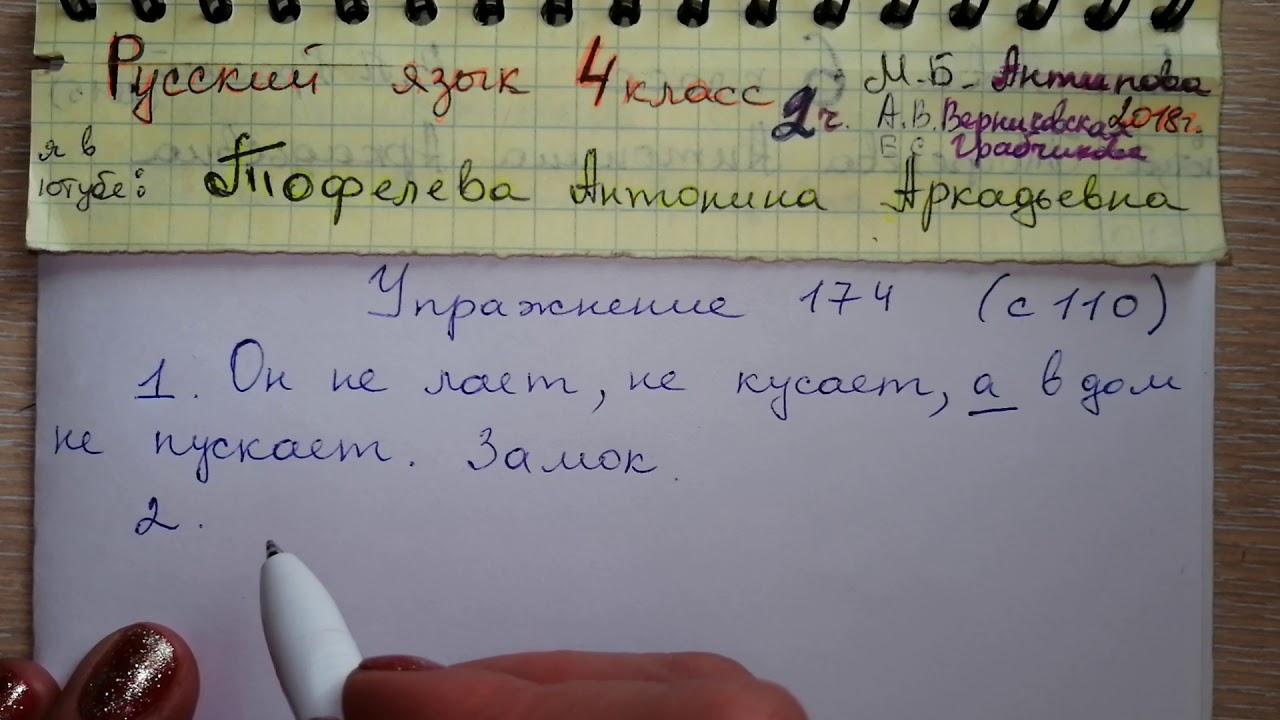 Русский язык 4 класс 2 ч.
М.Б. Антипова
А.В. Верниковская 2018г.
Е.С. Грабчикова
я в ютубе: Тофелева Антонина Аркадьевна
Упражнение 174 (с 110)
1. Он не лает, не кусает, а в дом
не пускает. Замок.
2.